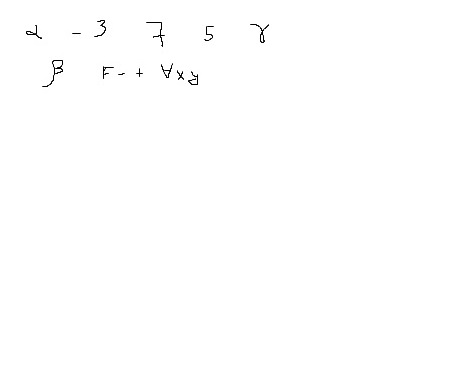 α - 3 7 5 γ
β F - + ∀xy